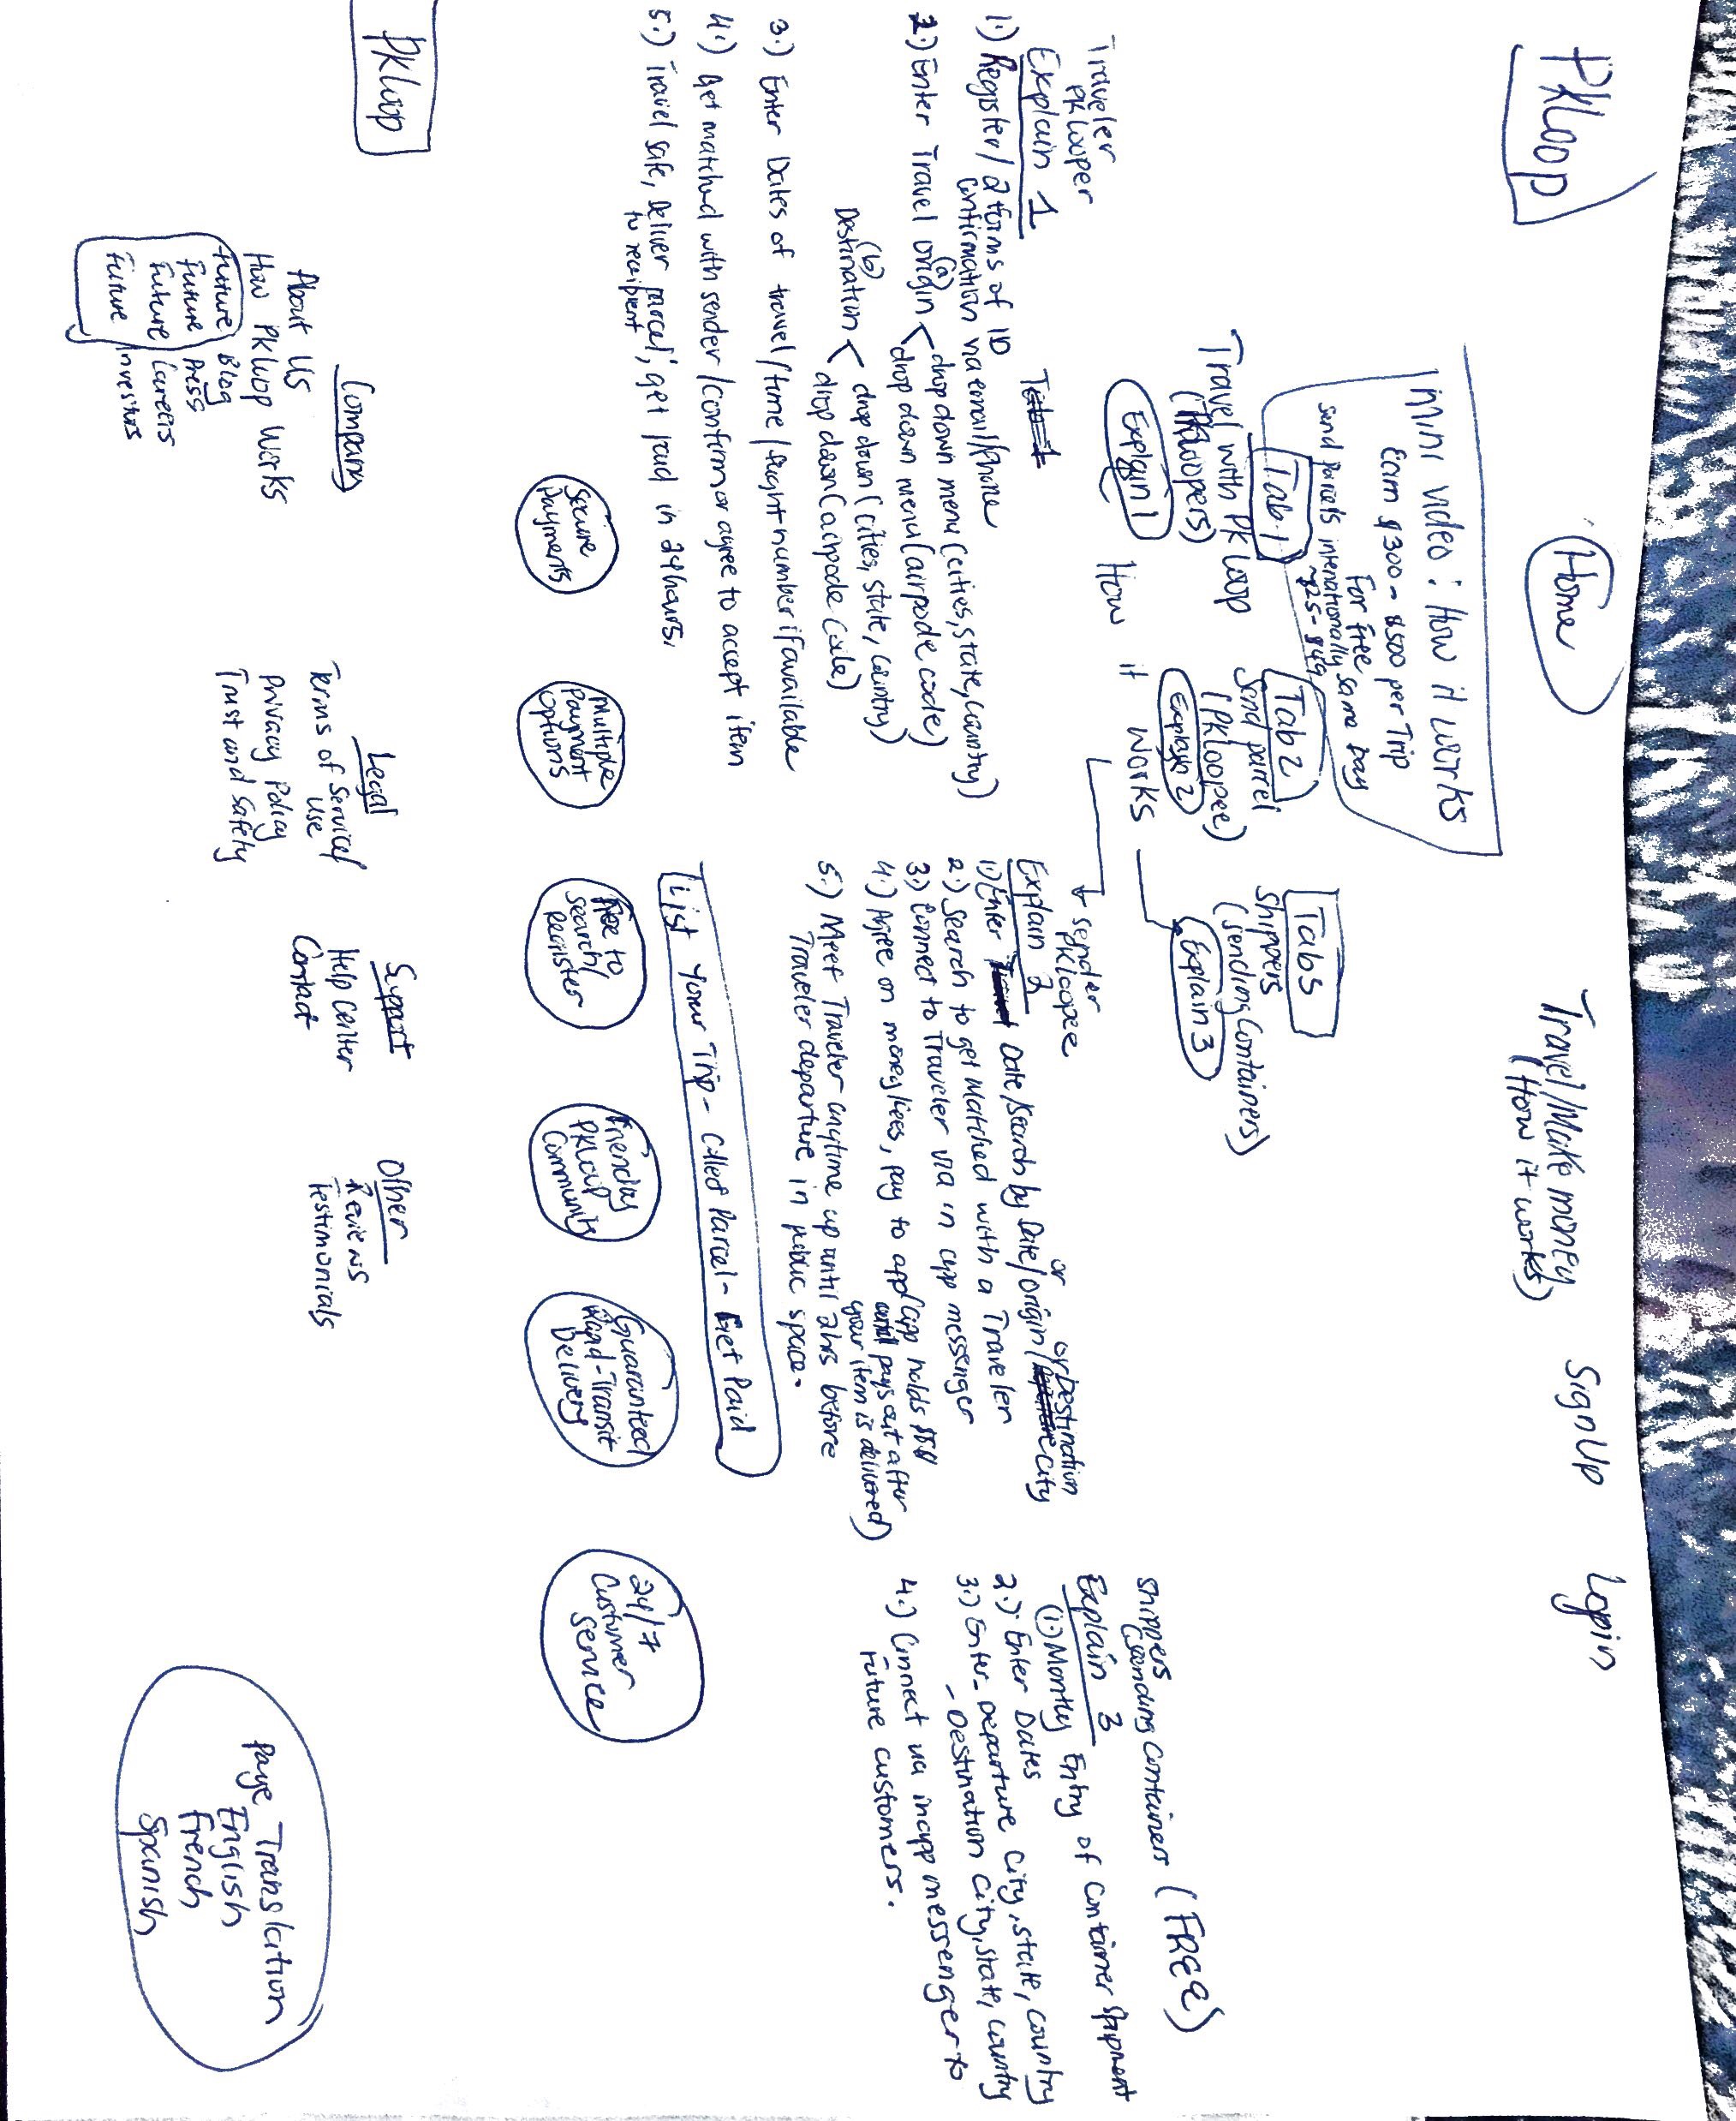 PKLoop
Home
Travel/Make money
(How it works)
SignUp
Login
mini video: How it works
Earn $300 - $500 per Trip
For free
Send parcels internationally same Day
~$25-$49
Tab 1
Travel with PK Loop
(PKloopers)
Explain 1
Tab 2
Send parcel
(PKloopee)
Explain 2
Tab 3
Shippers
(sending Containers)
Explain 3
How it works
Traveler
PK Looper
Explain 1
Tab 1
1.) Register/ 2 forms of ID
Confirmation via email/phone
2.) Enter Travel origin
(a)
drop down menu (cities, state, country)
drop down menu (airpode code)
(b)
Destination
drop down (cities, state, country)
drop down (airpode code)
3.) Enter Dates of travel/time/flight number if available
4.) Get matched with sender/confirm or agree to accept item
5.) Travel safe, Deliver parcel; get paid in 24 hours.
to recipient
sender
PKloopee
Explain 2
or or Destination
1) Enter Date/search by Date/origin/ City
2.) Search to get Matched with a Traveler
3.) Connect to Traveler via in app messenger
4.) Agree on money/fees, pay to app (app holds
pays out after
your item is delivered)
5.) Meet Traveler anytime up until 2hrs before
Traveler departure in public space.
Shippers
(sending Containers (FREE)
Explain 3
(1.) Montly Entry of Container Shipment
2.) Enter Dates
3.) Enter - Departure City, state, country
- Destination City, state, country
4.) Connect via inapp messenger to
Future customers.
List Your Trip - Collect Parcel - Get Paid
Secure
Payments
Multiple
Payment
Options
Free to
Search/
Register
Friendly
PKLoop
Community
Guaranteed
Rapid-Transit
Delivery
24/7
Customer
Service
PKloop
Company
About Us
How PKloop Works
Future Blog
Future Press
Future Careers
Future Investors
Legal
Terms of Service/
Use
Privacy Policy
Trust and Safety
Support
Help Center
Contact
Other
Reviews
Testimonials
Page Translation
English
French
Spanish